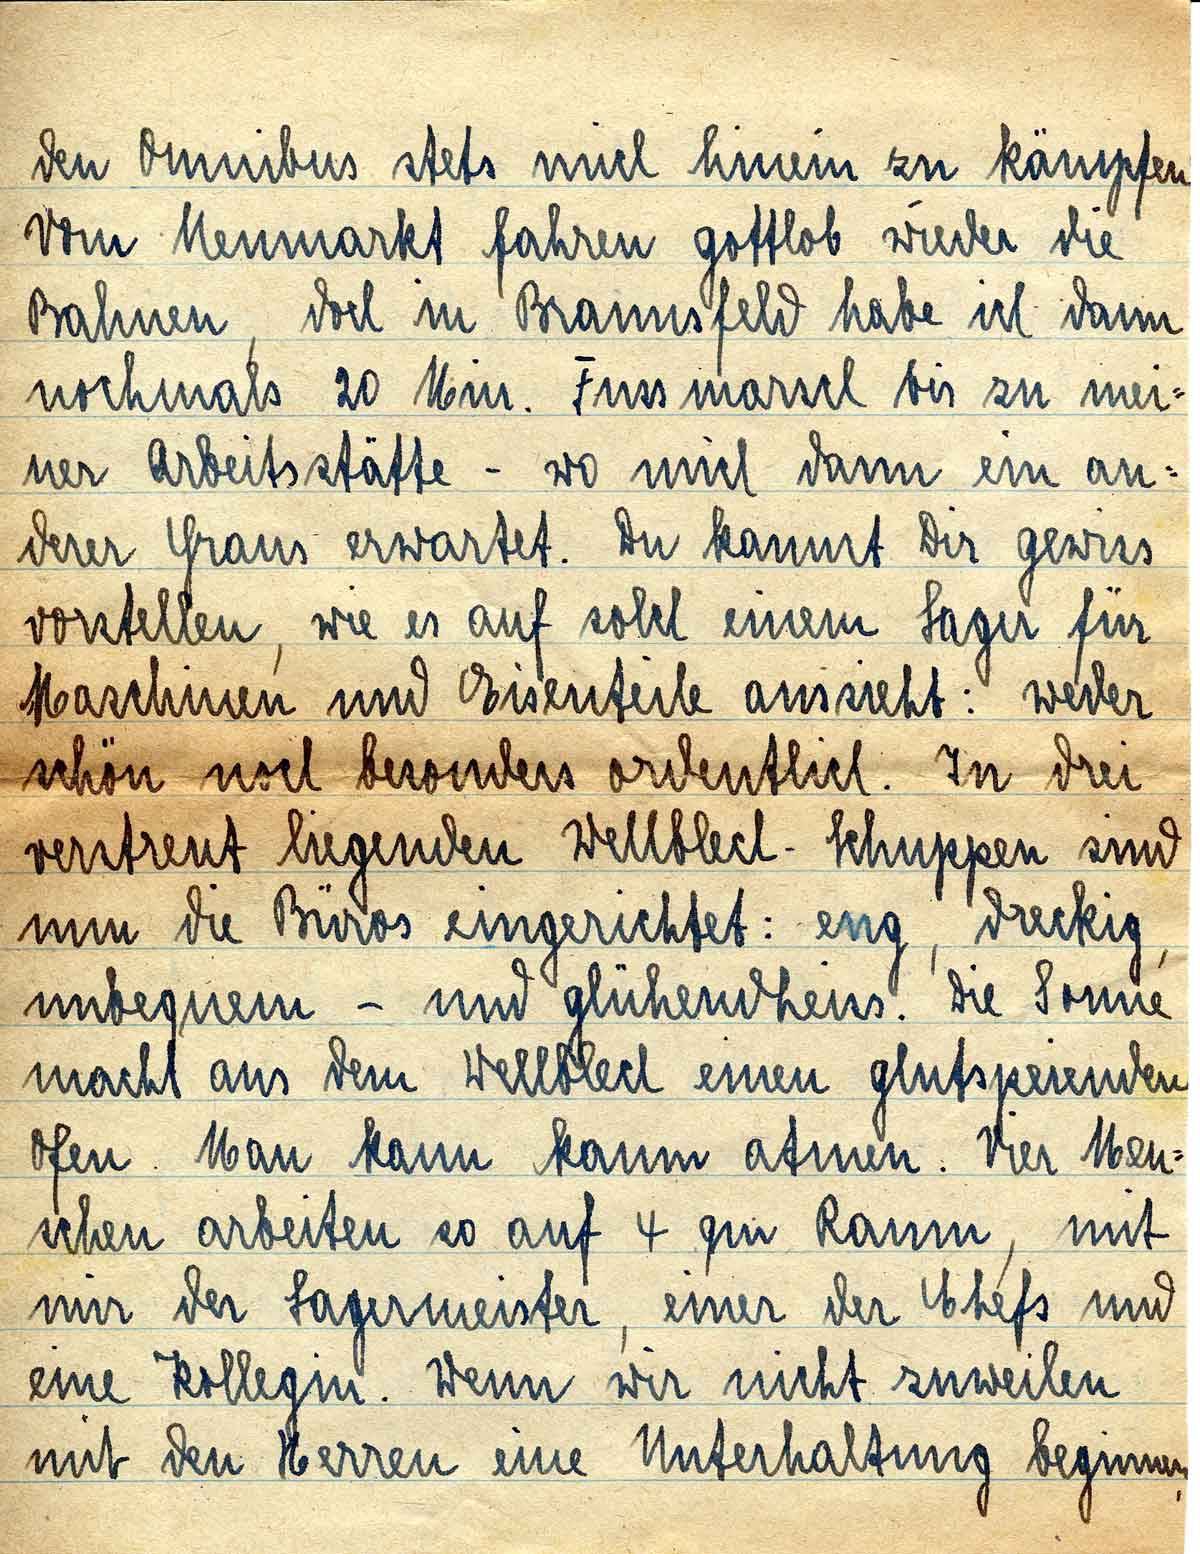 den Omnibus stets mich hinein zu kämpfen
Vom Neumarkt fahren gottlob wieder die
Bahnen, doch in Braunsfeld habe ich dann
nochmals 20 Min. Fussmarsch bis zu mei=
ner Arbeitsstätte - wo mich dann ein an=
derer Graus erwartet. Du kannst Dir gewiss
vorstellen, wie es auf solch einem Lager für
Maschinen und Eisenteile aussieht: weder
schön noch besonders ordentlich. In drei
verstreut liegenden Wellblech-Schuppen sind
nun die Büros eingerichtet: eng, dreckig,
unbequem - und glühendheiss. Die Sonne
macht aus dem Wellblech einen glutspeienden
Ofen. Man kann kaum atmen. Vier Men=
schen arbeiten so auf 4 qm Raum, mit
mir der Lagermeister, einer der Chefs und
eine Kollegin. Wenn wir nicht zuweilen
mit den Herren eine Unterhaltung beginnen,